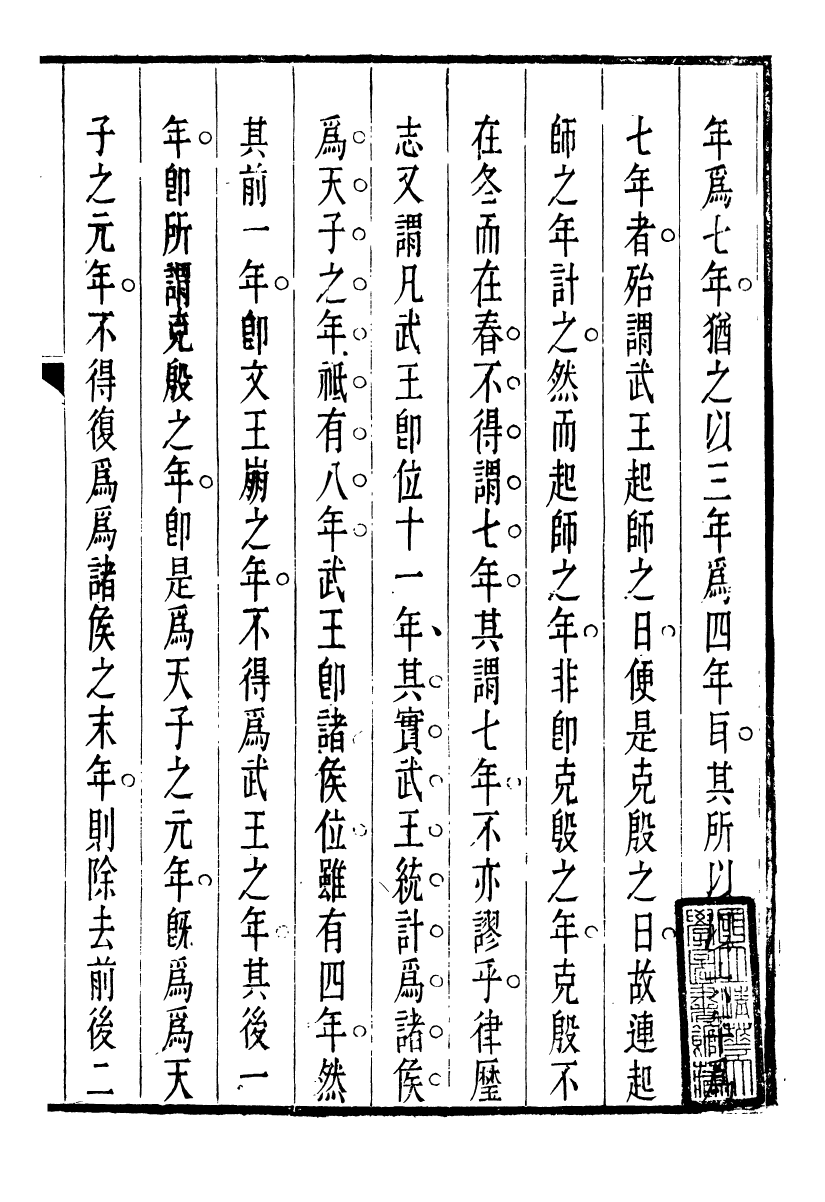 年爲七年。猶之以三年爲四年耳。其所以爲
七年者。殆謂武王起師之日。便是克殷之日。故連起
師之年計之。然而起師之年。非卽克殷之年。克殷不
在冬而在春。不得謂七年。其謂七年。不亦謬乎。律歷
志又謂凡武王卽位十一年、其實武王統計爲諸侯
爲天子之年。祗有八年。武王卽諸侯位。雖有四年。然
其前一年。卽文王崩之年。不得爲武王之年。其後一
年。卽所謂克殷之年。卽是爲天子之元年。旣爲爲天
子之元年。不得復爲爲諸侯之末年。則除去前後二
國立清華大
學圖書館藏